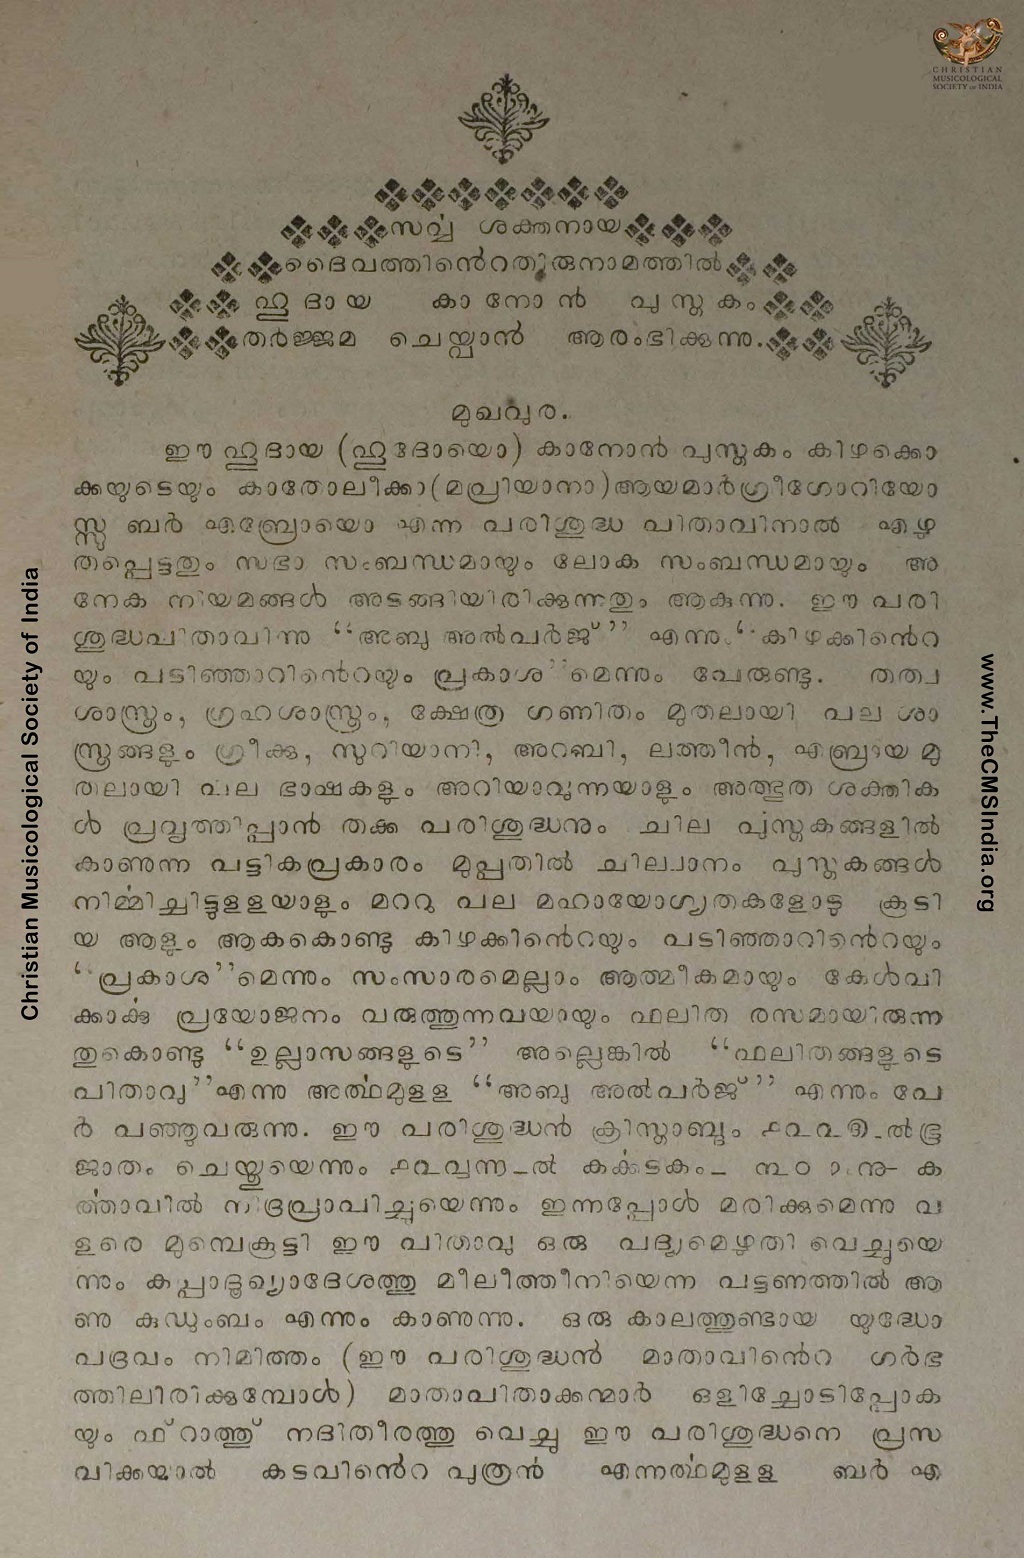 CHRISTIAN
MUSICOLOGICAL
SOCIETY OF INDIA
സൎവ്വ ശക്തനായ
ദൈവത്തിൻെറതിരുനാമത്തിൽ
ഹൂദായ കാനോൻ പുസ്തകം
തർജ്ജമ ചെയ്വാൻ ആരംഭിക്കുന്നു.
മുഖവുര.
ഈ ഹൂദായ (ഹൂദോയൊ) കാനോൻ പുസ്തകം കിഴക്കൊ
ക്കയുടെയും കാതോലീക്കാ(മപ്രിയാനാ)ആയമാർഗ്രീഗോറിയോ
സ്സു ബർ എബ്രോയൊ എന്ന പരിശുദ്ധ പിതാവിനാൽ എഴു
തപ്പെട്ടതും സഭാ സംബന്ധമായും ലോക സംബന്ധമായും അ
നേക നിയമങ്ങൾ അടങ്ങിയിരിക്കുന്നതും ആകുന്നു. ഈ പരി
ശുദ്ധപിതാവിന്നു “അബു അൽപർജ്” എന്നു “കിഴക്കിൻെറ
യും പടിഞ്ഞാറിൻെറയും പ്രകാശ”മെന്നും പേരുണ്ടു. തത്വ
ശാസ്ത്രം, ഗ്രഹശാസ്ത്രം, ക്ഷേത്ര ഗണിതം മുതലായി പല ശാ
സ്ത്രങ്ങളും ഗ്രീക്കു, സുറിയാനി, അറബി, ലത്തീൻ, എബ്രായ മു
തലായി പല ഭാഷകളും അറിയാവുന്നയാളും അത്ഭുത ശക്തിക
ൾ പ്രവൃത്തിപ്പാൻ തക്ക പരിശുദ്ധനും ചില പുസ്തകങ്ങളിൽ
കാണുന്ന പട്ടികപ്രകാരം മുപ്പതിൽ ചില്വാനം പുസ്തകങ്ങൾ
നിൎമ്മിച്ചിട്ടുളളയാളും മററു പല മഹായോഗ്യതകളോടു കൂടി
യ ആളും ആകകൊണ്ടു കിഴക്കിൻെറയും പടിഞ്ഞാറിൻെറയും
“പ്രകാശ”മെന്നും സംസാരമെല്ലാം ആത്മീകമായും കേൾവി
ക്കാൎക്കു പ്രയോജനം വരുത്തുന്നവയായും ഫലിത രസമായിരുന്ന
തുകൊണ്ടു “ഉല്ലാസങ്ങളുടെ” അല്ലെങ്കിൽ “ഫലിതങ്ങളുടെ
പിതാവു”എന്നു അൎത്ഥമുളള “അബു അൽപർജ്” എന്നും പേ
ർ പഞ്ഞുവരുന്നു. ഈ പരിശുദ്ധൻ ക്രിസ്താബ്ദം ൧൨൨൬-ൽഭൂ
ജാതം ചെയ്തുയെന്നും ൧൨൮൬-ൽ കൎക്കടകം- ൩൦ ാ നു- ക
ൎത്താവിൽ നിദ്രപ്രാപിച്ചുയെന്നും ഇന്നപ്പോൾ മരിക്കുമെന്നു വ
ളരെ മുമ്പെകൂട്ടി ഈ പിതാവു ഒരു പദ്യമെഴുതി വെച്ചുയെ
ന്നും കപ്പാദൂഖ്യാദേശത്തു മീലീത്തീനിയെന്ന പട്ടണത്തിൽ ആ
ണു കുഡുംബം എന്നും കാണുന്നു. ഒരു കാലത്തുണ്ടായ യുദ്ധോ
പദ്രവം നിമിത്തം (ഈ പരിശുദ്ധൻ മാതാവിൻെറ ഗർഭ
ത്തിലിരിക്കുമ്പോൾ) മാതാപിതാക്കന്മാർ ഒളിച്ചോടിപ്പോക
യും ഫ്റാത്തു് നദിതീരത്തു വെച്ചു ഈ പരിശുദ്ധനെ പ്രസ
വിക്കയാൽ കടവിൻെറ പുത്രൻ എന്നൎത്ഥമുളള ബർ എ
Christian Musicological Society of India
www.TheCMSIndia.org